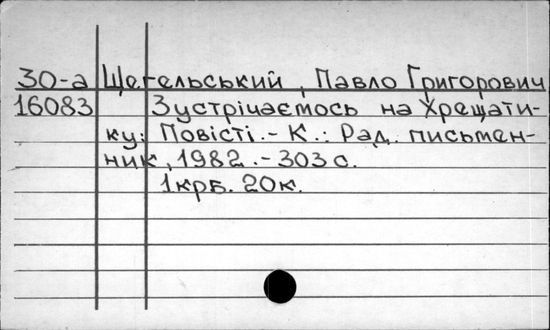 30-а Щегельський, Павло Григорович
16083 Зустрічаємось на Хрещати-
ку: Повісті.- К.: Рад. письмен-
ник, 1982.- 303 с.
1 крб. 20 к.